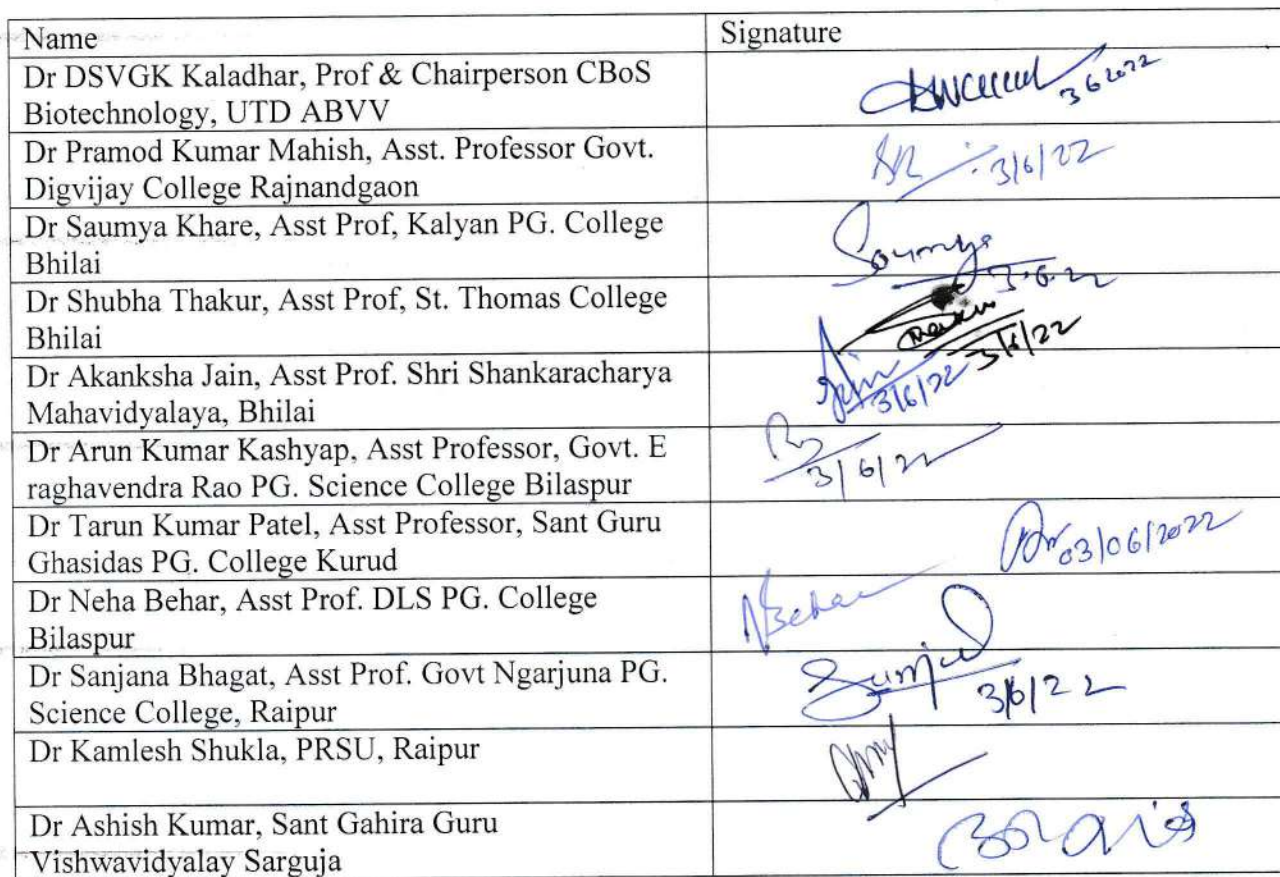 Name
Signature
Dr DSVGK Kaladhar, Prof & Chairperson CBoS
Biotechnology, UTD ABVV
3 6 2022
Dr Pramod Kumar Mahish, Asst. Professor Govt.
Digvijay College Rajnandgaon
3/6/22
Dr Saumya Khare, Asst Prof, Kalyan PG. College
Bhilai
Saumya
3.6.22
Dr Shubha Thakur, Asst Prof, St. Thomas College
Bhilai
3/6/22
Dr Akanksha Jain, Asst Prof. Shri Shankaracharya
Mahavidyalaya, Bhilai
3/6/22
Dr Arun Kumar Kashyap, Asst Professor, Govt. E
raghavendra Rao PG. Science College Bilaspur
3/6/22
Dr Tarun Kumar Patel, Asst Professor, Sant Guru
Ghasidas PG. College Kurud
03/06/2022
Dr Neha Behar, Asst Prof. DLS PG. College
Bilaspur
NBehar
Dr Sanjana Bhagat, Asst Prof. Govt Ngarjuna PG.
Science College, Raipur
3/6/22
Dr Kamlesh Shukla, PRSU, Raipur
Dr Ashish Kumar, Sant Gahira Guru
Vishwavidyalay Sarguja